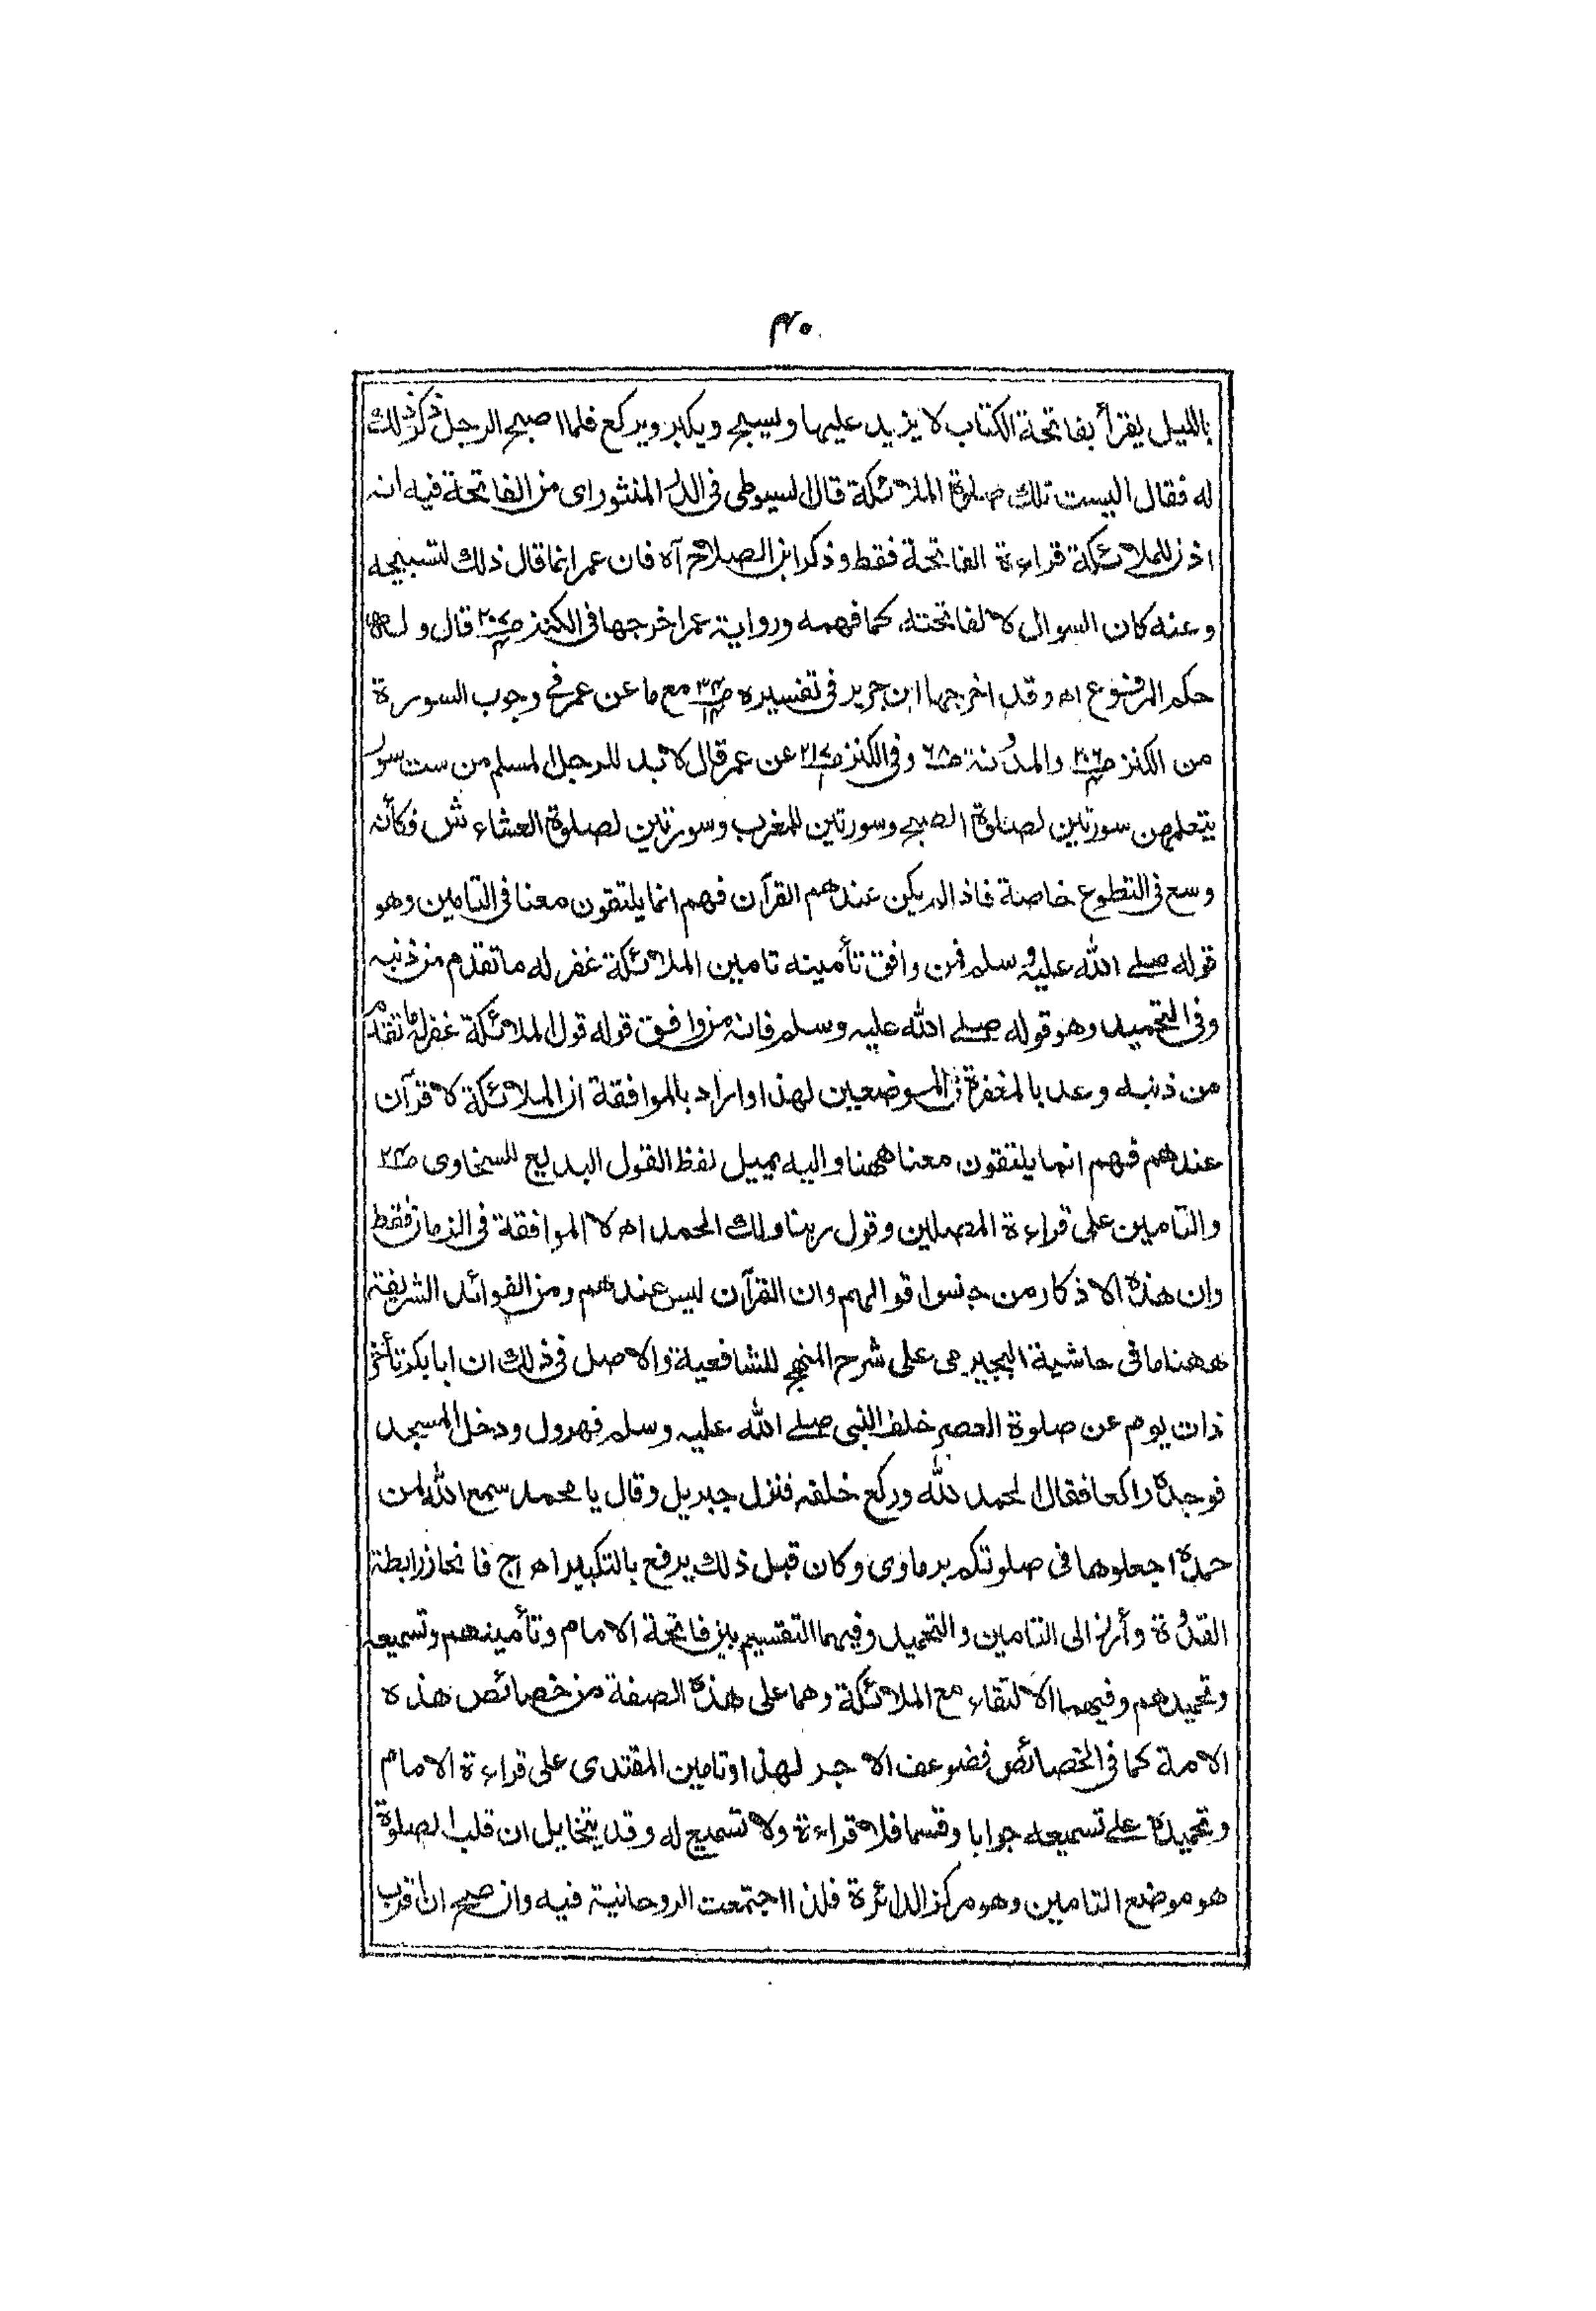 ۴۰
بالليل يقرأ بفاتحة الكتاب لا يزيد عليها ويسبح ويكبر ويركع فلما اصبح الرجل ذكر ذلك
له فقال اليست تلك صلوة الملائكة قال السيوطى فى الدر المنثور اى من الفاتحة فيه انه
اذن للملائكة قراءة الفاتحة فقط وذكر ابن الصلاح آه فان عمر انما قال ذلك لتسبيحه
وعنه كان السوال لا لفاتحته كما فهمه ورواية عمر اخرجها فى الكنز قال و له
حكم المرفوع اه وقد اخرجها ابن جرير فى تفسيره مع ما عن عمر فى وجوب السورة
من الكنز ص والمدونة ص۶۸ وفى الكنز ص عن عمر قال لا بد للرجل المسلم من ست سور
يتعلمهن سورتين لصلوة الصبح وسورتين للمغرب وسورتين لصلوة العشاء ش فكأنه
وسع فى التطوع خاصة فاذا لم يكن عندهم القرآن فهم انما يلتقون معنا فى التامين وهو
قوله صلے الله عليه وسلم فمن وافق تأمينه تامين الملائكة غفر له ما تقدم من ذنبه
وفى التحميد وهو قوله صلے الله عليه وسلم فانه من وافق قوله قول الملائكة غفر له ما تقدم
من ذنبه وعد بالمغفرة فى الموضعين لهذا واراد بالموافقة ان الملائكة لا قرآن
عندهم فهم انما يلتقون معنا ههنا واليه يميل لفظ القول البديع للسخاوى ص
والتامين على قراءة المصلين وقول ربنا ولك الحمد اه لا الموافقة فى الزمان فقط
وان هذه الاذكار من جنس اقوالهم وان القرآن ليس عندهم ومن الفوائد الشريفة
ههنا ما فى حاشية البجيرمى على شرح المنهج للشافعية والاصل فى ذلك ان ابا بكر تأخر
ذات يوم عن صلوة العصر خلف النبى صلے الله عليه وسلم فهرول ودخل المسجد
فوجده راكعا فقال الحمد لله وركع خلفه فنزل جبريل وقال يا محمد سمع الله لمن
حمده اجعلوها فى صلوتكم برماوى وكان قبل ذلك يرفع بالتكبير اه اج فانحاز رابطة
القدوة وأرز الى التامين والتحميد وفيهما التقسيم بين فاتحة الامام وتأمينهم وتسميعه
وتحميدهم وفيهما الالتقاء مع الملائكة وهما على هذه الصفة من خصائص هذه
الامة كما فى الخصائص فضوعف الاجر لهذا وتامين المقتدى على قراءة الامام
وتحميده على تسميعه جوابا وقسما فلا قراءة ولا تسميع له وقد يتخايل ان قلب الصلوة
هو موضع التامين وهو مركز الدائرة فلذا اجتمعت الروحانية فيه وان صح ان اقرب